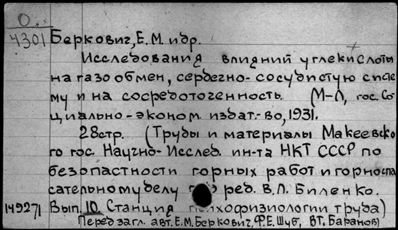 О...
4301 Беркович, Е.М. и др.
Исследования влияний углекислоты
на газообмен, сердечно-сосудистую систе
му и на сосредоточенность. (М-Л, гос. Со
циально-эконом издат-во, 1931.
28стр. (Труды и материалы Макеевско
го гос. Научно-Исслед. ин-та НКТ СССР по
безопастности горных работ и горноспа
сательному делу ред. В.Л. Биленко.
149271 Вып. 10. Станция психофизиологии труда)
Перед загл. авт. Е.М. Беркович, Ф.Е. Шуб, В.Т. Баранов)